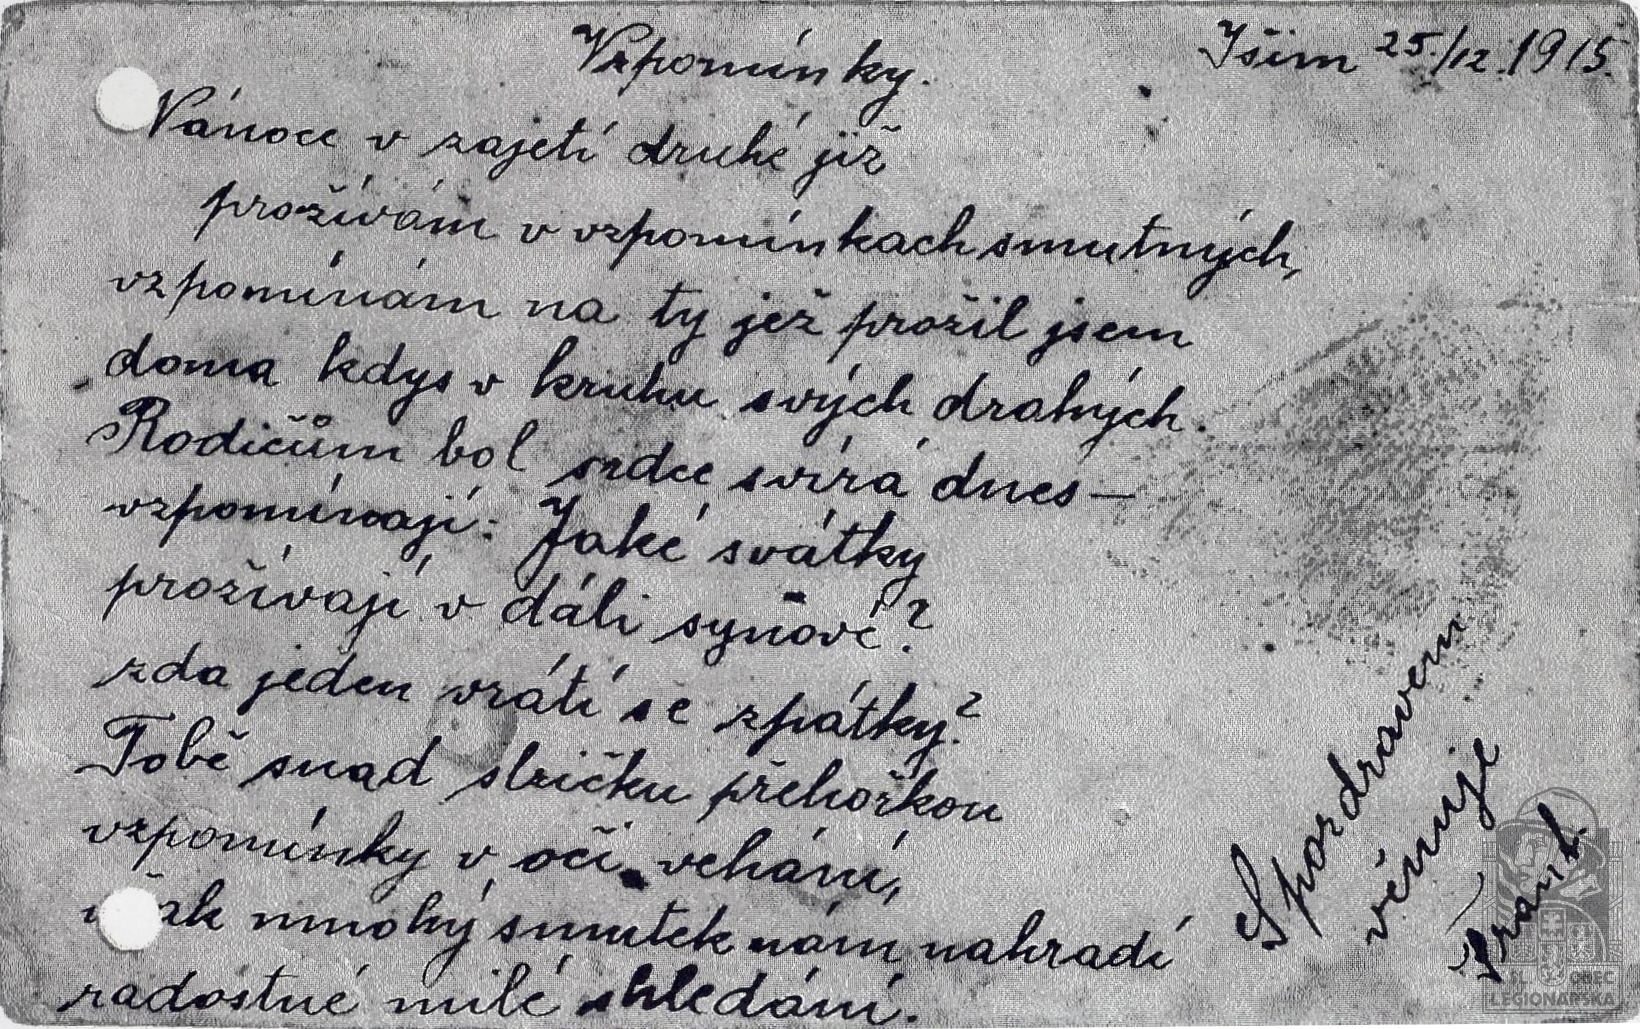 Vzpomínky.
Išim 25./12. 1915.
Vánoce v zajetí druhé již
prožívám v vzpomínkach smutných,
vzpomínám na ty jež prožil jsem
doma kdys v kruhu svých drahých.
Rodičům bol srdce svírá dnes —
vzpomínají: Jaké svátky
prožívají v dáli synové?
zda jeden vrátí se zpátky?
Tobě snad slzičku přehořkou
vzpomínky v oči vehání,
však mnohý smutek nám nahradí
radostné milé shledání.
S pozdravem
věnuje
Frant.
ČSL OBEC
LEGIONÁŘSKÁ